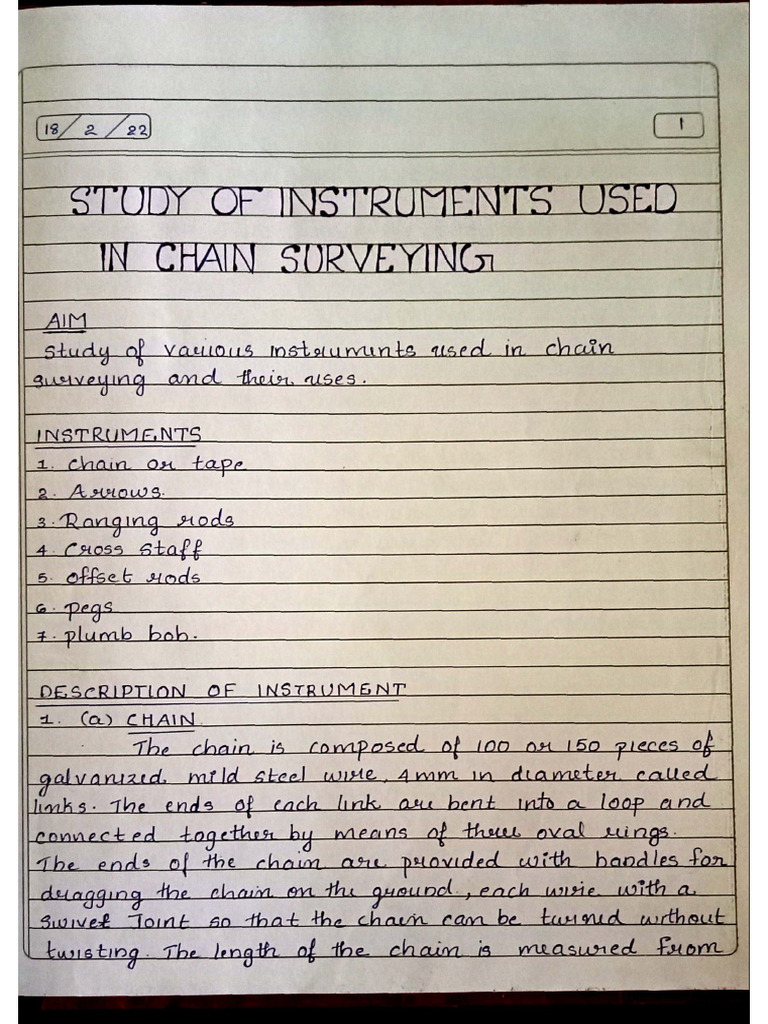 18/2/22
1
STUDY OF INSTRUMENTS USED
IN CHAIN SURVEYING
AIM
Study of various instruments used in chain
surveying and their uses.
INSTRUMENTS
1. chain or tape
2. Arrows.
3. Ranging rods
4. Cross staff
5. offset rods
6. pegs
7. plumb bob.
DESCRIPTION OF INSTRUMENT
1. (a) CHAIN
The chain is composed of 100 or 150 pieces of
galvanized mild steel wire, 4mm in diameter called
links. The ends of each link are bent into a loop and
connected together by means of three oval rings.
The ends of the chain are provided with handles for
dragging the chain on the ground, each wire with a
swivel Joint so that the chain can be turned without
twisting. The length of the chain is measured from